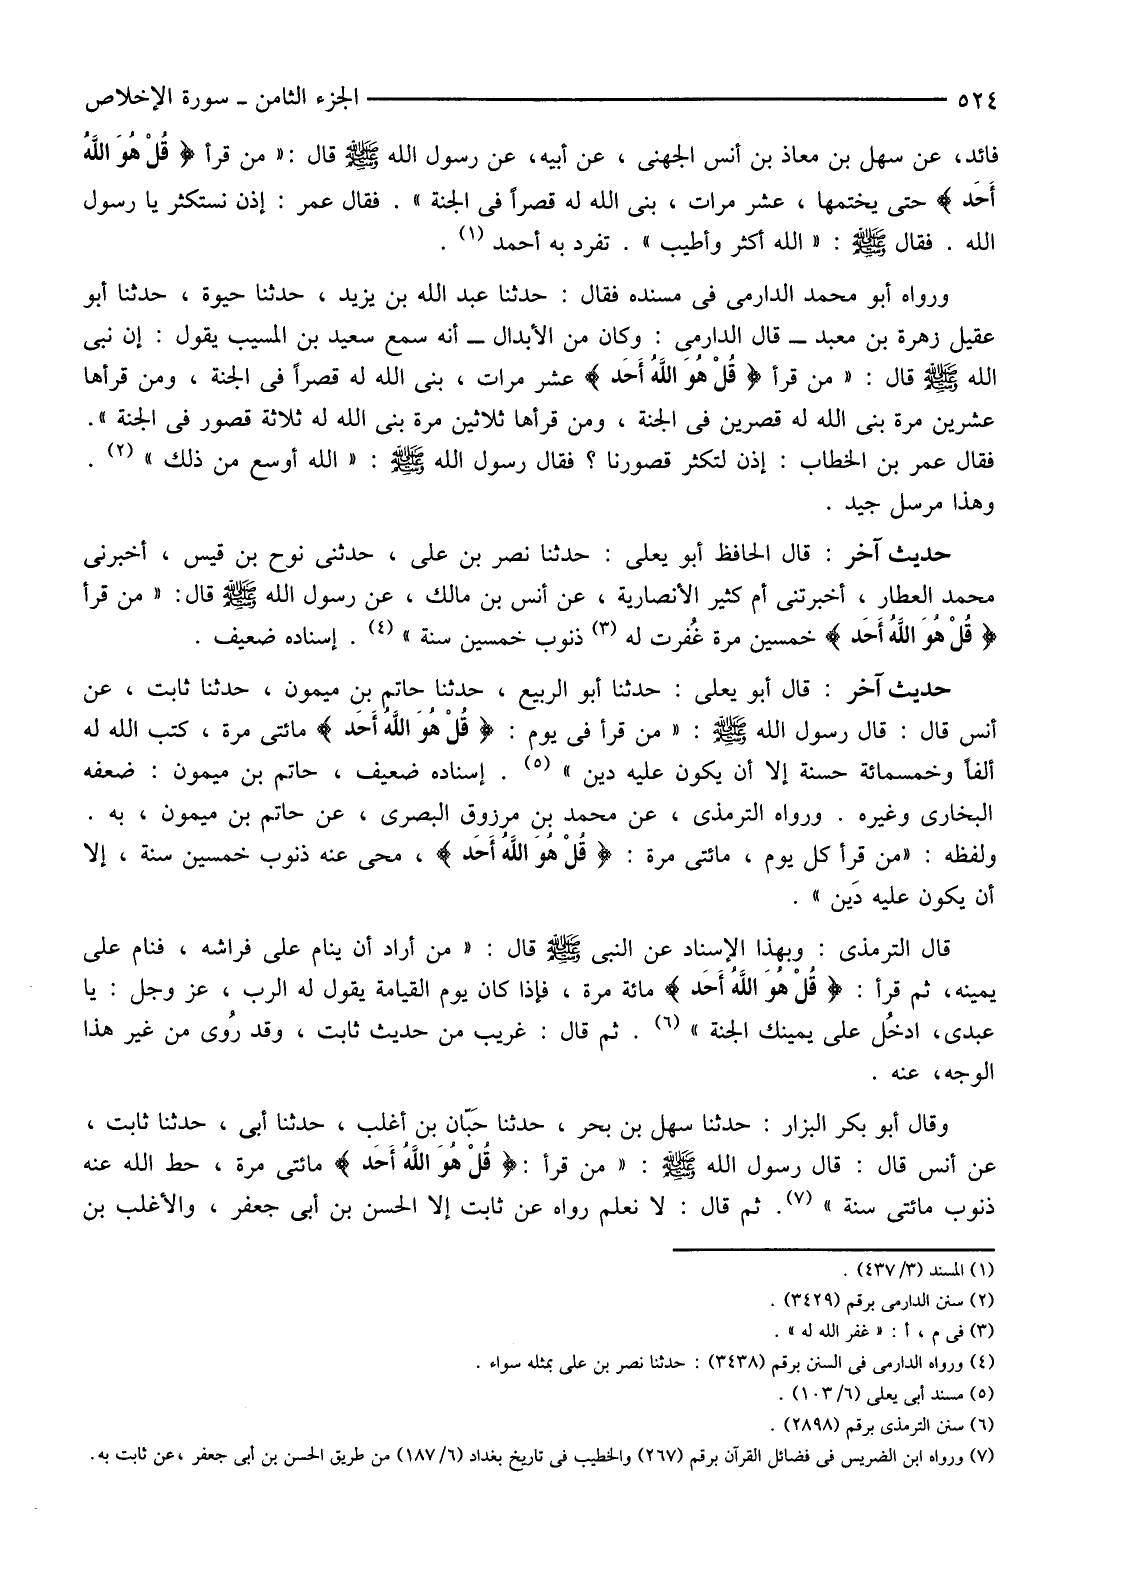 ٥٢٤ ــــــــــــــــــ الجزء الثامن ـ سورة الإخلاص
فائد، عن سهل بن معاذ بن أنس الجهنى ، عن أبيه، عن رسول الله ﷺ قال :« من قرأ ﴿ قُلْ هُوَ اللَّهُ
أَحَد ﴾ حتى يختمها ، عشر مرات ، بنى الله له قصراً فى الجنة » . فقال عمر : إذن نستكثر يا رسول
الله . فقال ﷺ : « الله أكثر وأطيب » . تفرد به أحمد (١) .
ورواه أبو محمد الدارمى فى مسنده فقال : حدثنا عبد الله بن يزيد ، حدثنا حيوة ، حدثنا أبو
عقيل زهرة بن معبد ــ قال الدارمى : وكان من الأبدال ــ أنه سمع سعيد بن المسيب يقول : إن نبى
الله ﷺ قال : « من قرأ ﴿ قُلْ هُوَ اللَّهُ أَحَد ﴾ عشر مرات ، بنى الله له قصراً فى الجنة ، ومن قرأها
عشرين مرة بنى الله له قصرين فى الجنة ، ومن قرأها ثلاثين مرة بنى الله له ثلاثة قصور فى الجنة ».
فقال عمر بن الخطاب : إذن لتكثر قصورنا ؟ فقال رسول الله ﷺ : « الله أوسع من ذلك » (٢) .
وهذا مرسل جيد .
حديث آخر : قال الحافظ أبو يعلى : حدثنا نصر بن على ، حدثنى نوح بن قيس ، أخبرنى
محمد العطار ، أخبرتنى أم كثير الأنصارية ، عن أنس بن مالك ، عن رسول الله ﷺ قال: « من قرأ
﴿ قُلْ هُوَ اللَّهُ أَحَد ﴾ خمسين مرة غُفرت له (٣) ذنوب خمسين سنة » (٤) . إسناده ضعيف .
حديث آخر : قال أبو يعلى : حدثنا أبو الربيع ، حدثنا حاتم بن ميمون ، حدثنا ثابت ، عن
أنس قال : قال رسول الله ﷺ : « من قرأ فى يوم : ﴿ قُلْ هُوَ اللَّهُ أَحَد ﴾ مائتى مرة ، كتب الله له
ألفاً وخمسمائة حسنة إلا أن يكون عليه دين » (٥) . إسناده ضعيف ، حاتم بن ميمون : ضعفه
البخارى وغيره . ورواه الترمذى ، عن محمد بن مرزوق البصرى ، عن حاتم بن ميمون ، به .
ولفظه : «من قرأ كل يوم ، مائتى مرة : ﴿ قُلْ هُوَ اللَّهُ أَحَد ﴾ ، محى عنه ذنوب خمسين سنة ، إلا
أن يكون عليه دَين » .
قال الترمذى : وبهذا الإسناد عن النبى ﷺ قال : « من أراد أن ينام على فراشه ، فنام على
يمينه، ثم قرأ : ﴿ قُلْ هُوَ اللَّهُ أَحَد ﴾ مائة مرة ، فإذا كان يوم القيامة يقول له الرب ، عز وجل : يا
عبدى، ادخُل على يمينك الجنة » (٦) . ثم قال : غريب من حديث ثابت ، وقد رُوى من غير هذا
الوجه، عنه .
وقال أبو بكر البزار : حدثنا سهل بن بحر ، حدثنا حَبّان بن أغلب ، حدثنا أبى ، حدثنا ثابت ،
عن أنس قال : قال رسول الله ﷺ : « من قرأ :﴿ قُلْ هُوَ اللَّهُ أَحَد ﴾ مائتى مرة ، حط الله عنه
ذنوب مائتى سنة » (٧). ثم قال : لا نعلم رواه عن ثابت إلا الحسن بن أبى جعفر ، والأغلب بن
(١) المسند (٤٣٧/٣) .
(٢) سنن الدارمى برقم (٣٤٢٩) .
(٣) فى م ، أ : « غفر الله له » .
(٤) ورواه الدارمى فى السنن برقم (٣٤٣٨) : حدثنا نصر بن على بمثله سواء .
(٥) مسند أبى يعلى (١٠٣/٦) .
(٦) سنن الترمذى برقم (٢٨٩٨) .
(٧) ورواه ابن الضريس فى فضائل القرآن برقم (٢٦٧) والخطيب فى تاريخ بغداد (١٨٧/٦) من طريق الحسن بن أبى جعفر ،عن ثابت به.